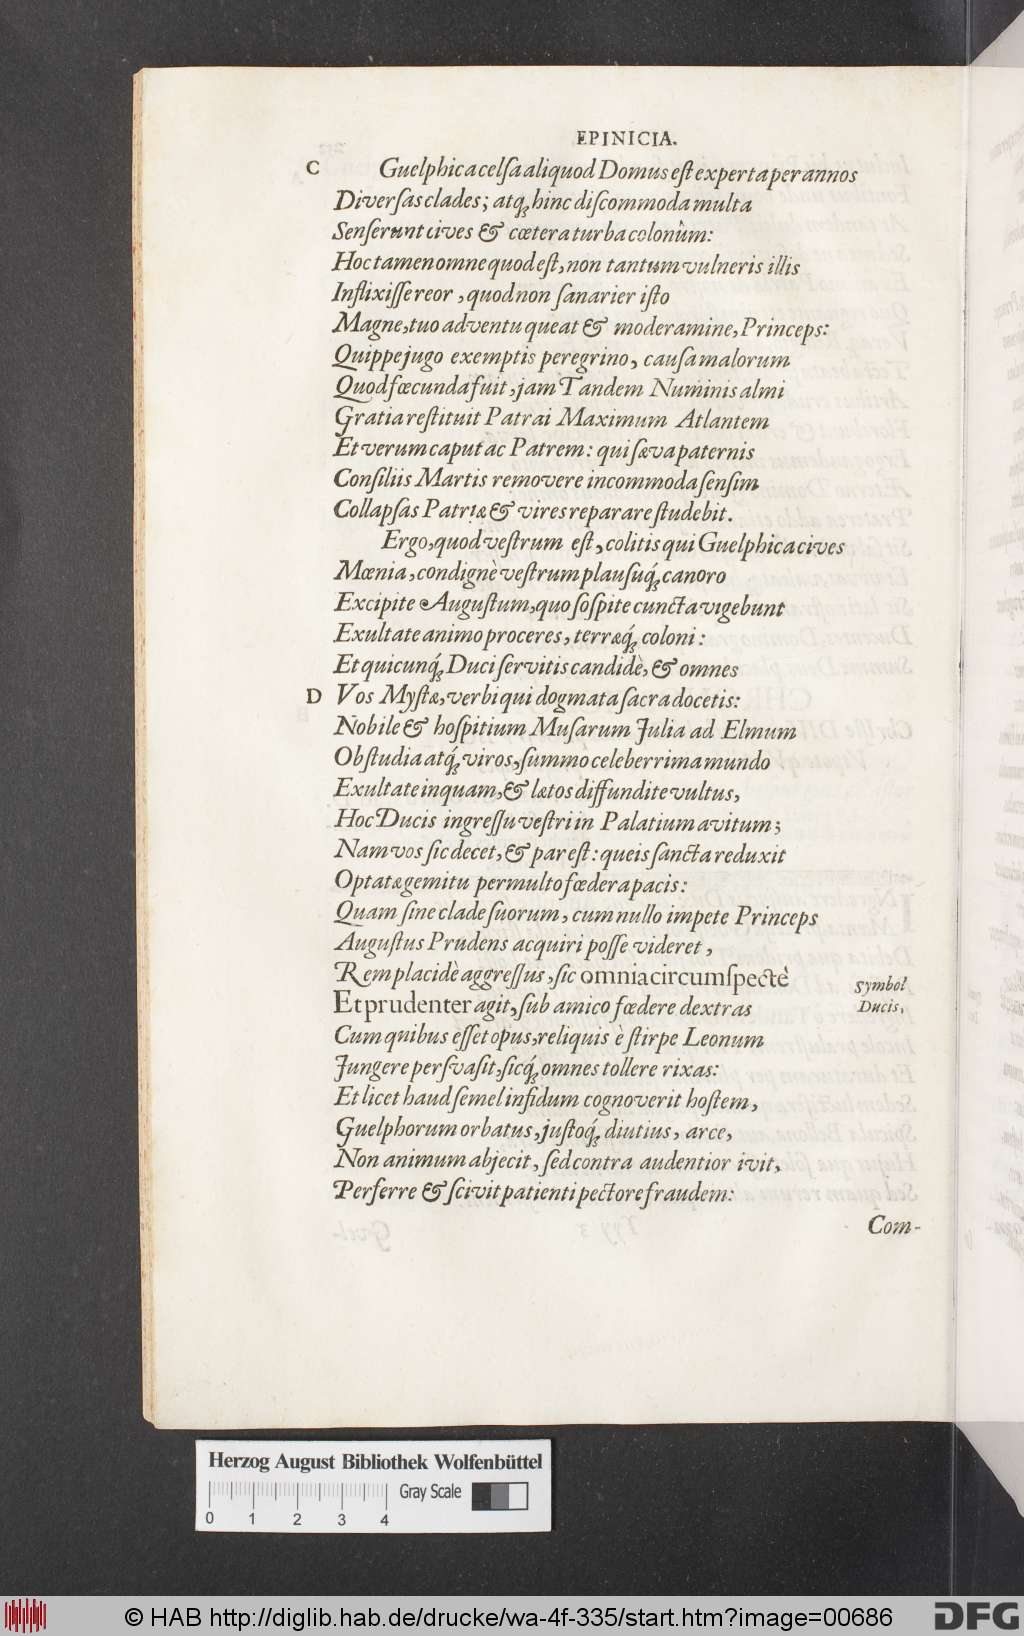 EPINICIA.
C Guelphica celſa aliquod Domus eſt experta per annos
Diverſas clades; atq́; hinc diſcommoda multa
Senſerunt cives & cœtera turba colonûm:
Hoc tamen omne quod eſt, non tantum vulneris illis
Inflixiſſe reor, quod non ſanarier iſto
Magne, tuo adventu queat & moderamine, Princeps:
Quippe jugo exemptis peregrino, cauſa malorum
Quod fœcunda fuit, jam Tandem Numinis almi
Gratia reſtituit Patrai Maximum Atlantem
Et verum caput ac Patrem: qui ſæva paternis
Conſiliis Martis removere incommoda ſenſim
Collapſas Patriæ & vires reparare ſtudebit.
Ergo, quod veſtrum eſt, colitis qui Guelphica cives
Mœnia, condignè veſtrum plauſúq́; canoro
Excipite Auguſtum, quo ſoſpite cuncta vigebunt
Exultate animo proceres, terræq́; coloni:
Et quicunq́; Duci ſervitis candidè, & omnes
D Vos Myſtæ, verbi qui dogmata ſacra docetis:
Nobile & hoſpitium Muſarum Julia ad Elmum
Ob ſtudia atq́; viros, ſummo celeberrima mundo
Exultate inquam, & lætos diffundite vultus,
Hoc Ducis ingreſſu veſtri in Palatium avitum;
Nam vos ſic decet, & par eſt: queis ſancta reduxit
Optatæ gemitu permulto fœdera pacis:
Quam ſine clade ſuorum, cum nullo impete Princeps
Auguſtus Prudens acquiri poſſe videret,
Rem placidè aggreſſus, ſic omnia circumſpectè
Symbol
Et prudenter agit, ſub amico fœdere dextras
Ducis,
Cum quibus eſſet opus, reliquis è ſtirpe Leonum
Jungere perſvaſit, ſicq́; omnes tollere rixas:
Et licet haud ſemel infidum cognoverit hoſtem,
Guelphorum orbatus, juſtoq́; diutius, arce,
Non animum abjecit, ſed contra audentior ivit,
Perferre & ſcivit patienti pectore fraudem:
Com-
Herzog August Bibliothek Wolfenbüttel
Gray Scale
0 1 2 3 4
© HAB http://diglib.hab.de/drucke/wa-4f-335/start.htm?image=00686
DFG